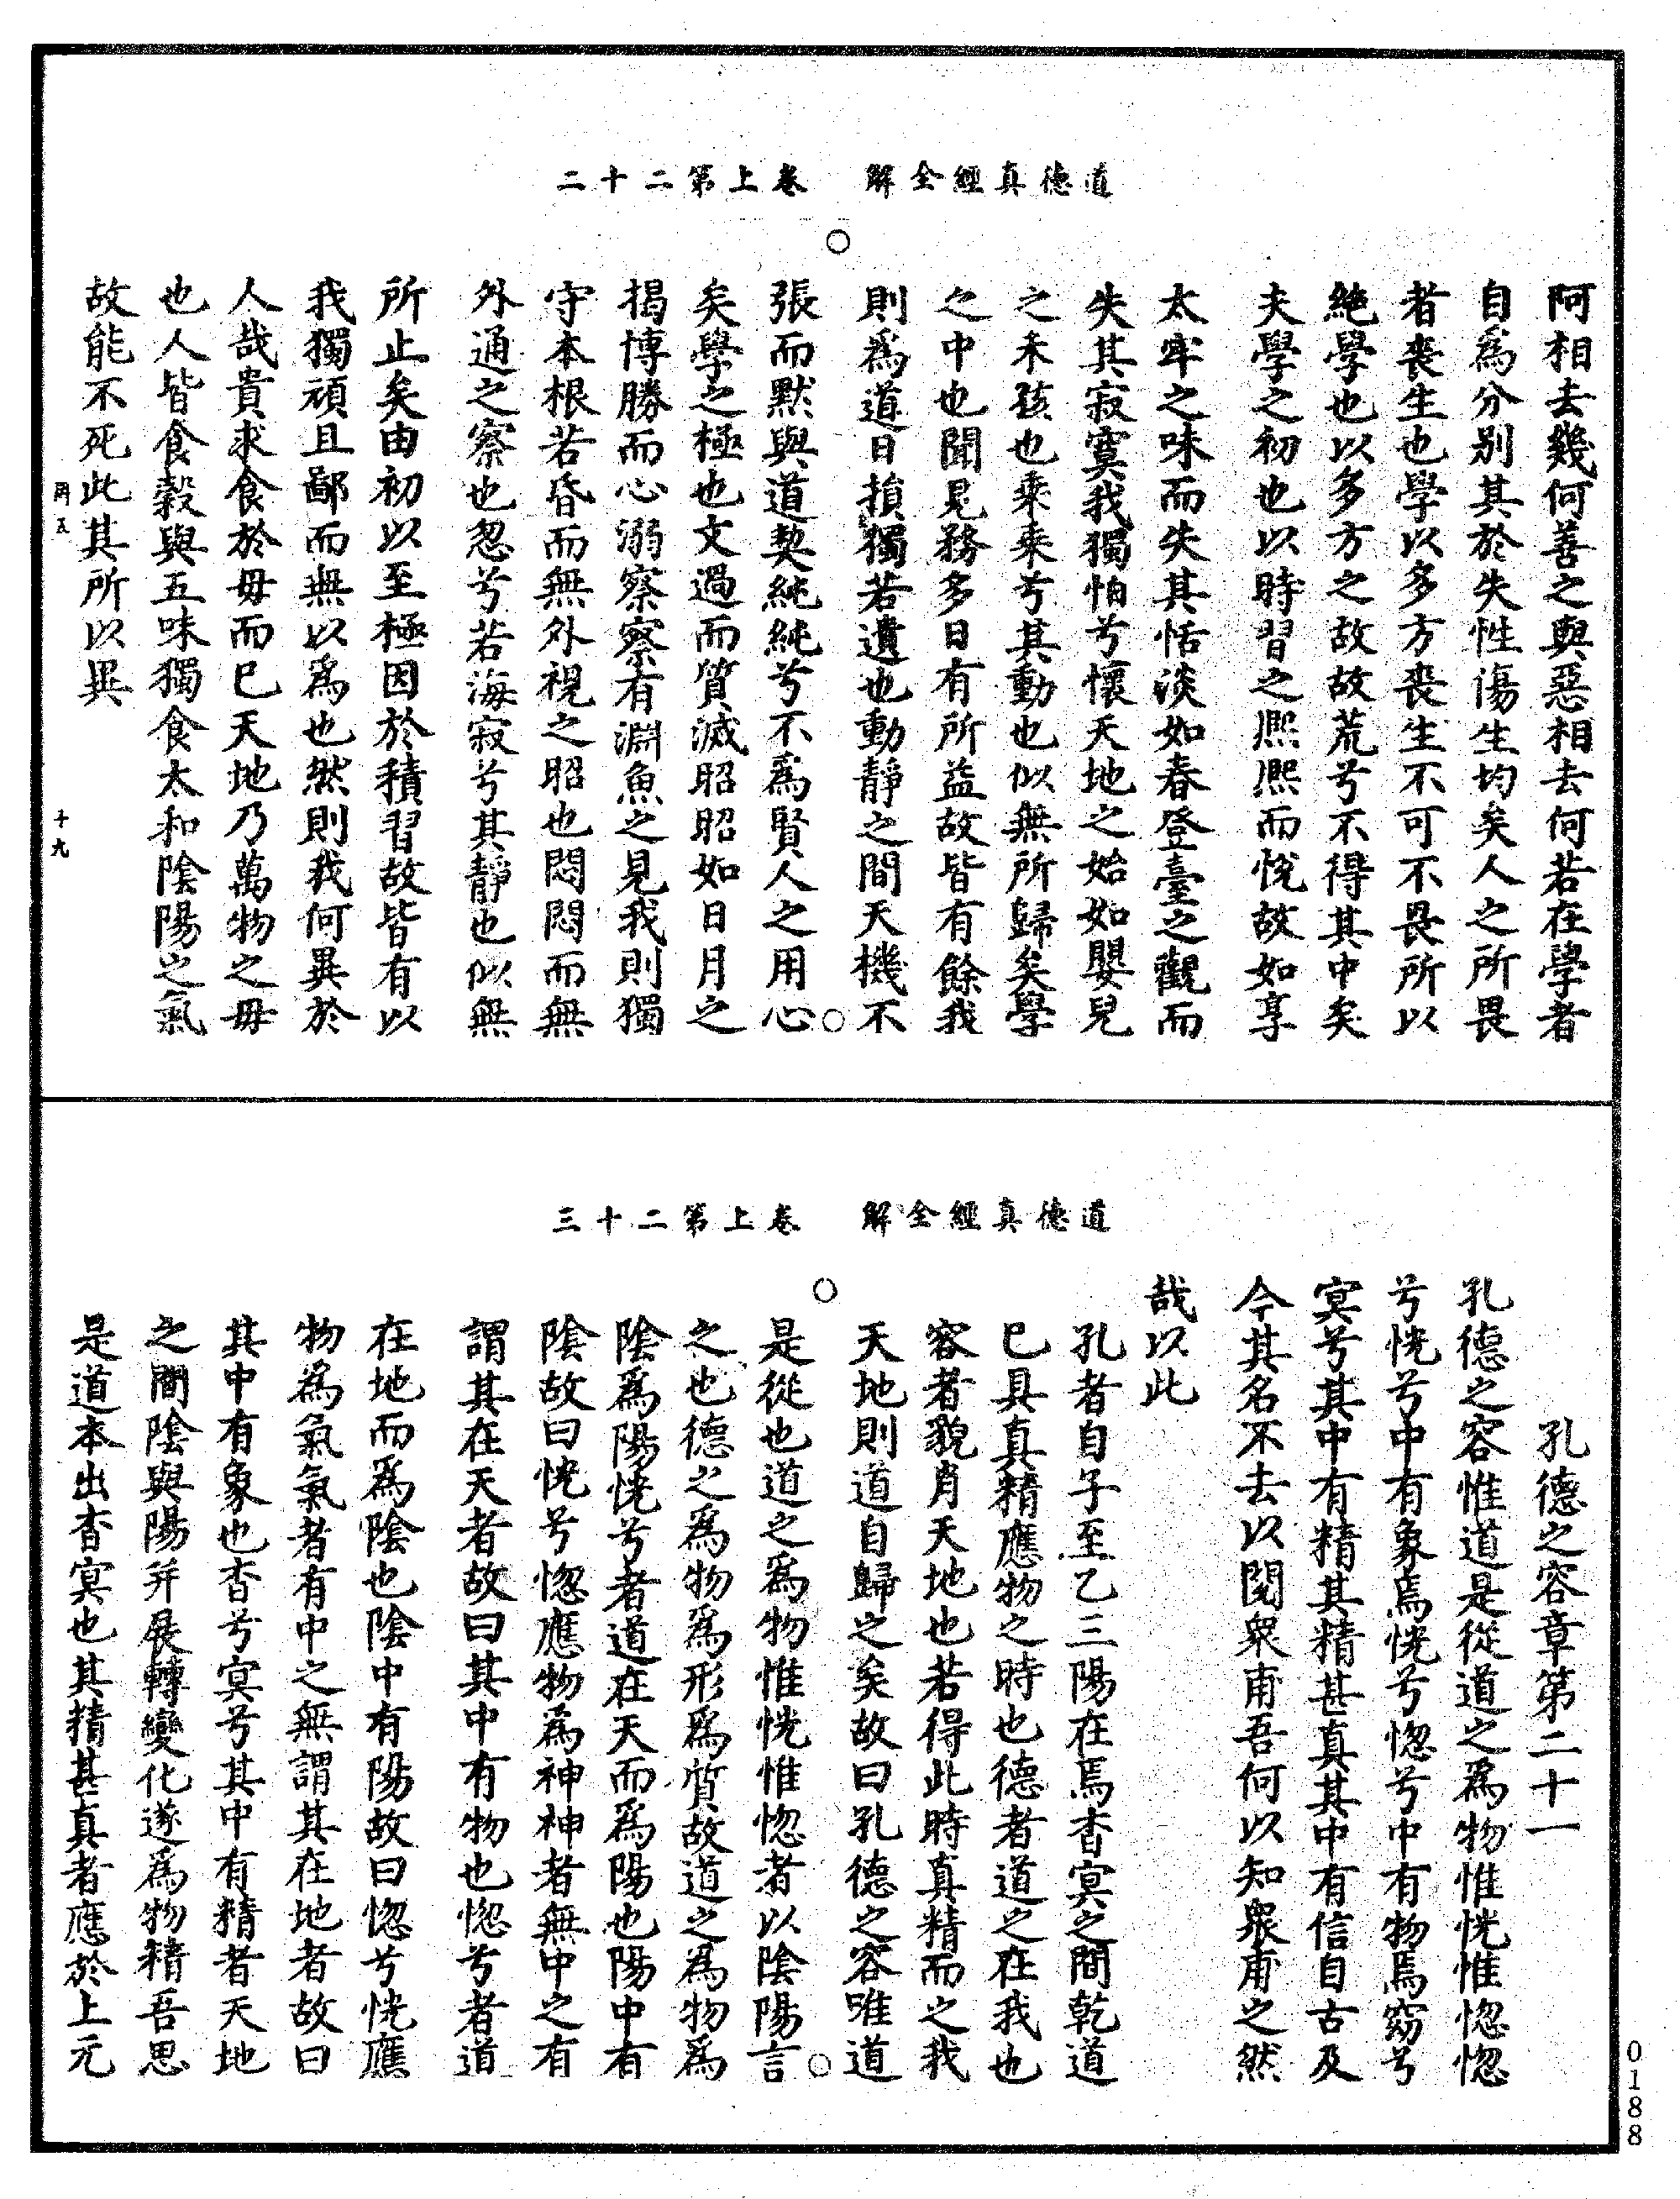 道德真經全解　卷上第二十二
阿相去幾何善之與惡相去何若在學者
自為分别其於失性傷生均矣人之所畏
者喪生也學以多方喪生不可不畏所以
絶學也以多方之故故荒兮不得其中矣
夫學之初也以時習之熈熈而悅故如享
太牢之味而失其恬淡如春登臺之觀而
失其寂寞我獨怕兮懷天地之始如嬰兒
之未孩也乘乘兮其動也似無所歸矣學
之中也聞見務多日有所益故皆有餘我
則為道日損獨若遺也動靜之間天機不
張而默與道契純純兮不為賢人之用心
矣學之極也文過而質滅昭昭如日月之
揭博勝而心溺察察有淵魚之見我則獨
守本根若昏而無外視之昭也悶悶而無
外通之察也忽兮若海寂兮其靜也似無
所止矣由初以至極因於積習故皆有以
我獨頑且鄙而無以為也然則我何異於
人哉貴求食於母而已天地乃萬物之母
也人皆食穀與五味獨食太和陰陽之氣
故能不死此其所以異
十九
道德真經全解　卷上第二十三
孔德之容章第二十一
孔德之容惟道是從道之為物惟恍惟惚惚
兮恍兮中有象焉恍兮惚兮中有物焉窈兮
冥兮其中有精其精甚真其中有信自古及
今其名不去以閱衆甫吾何以知衆甫之然
哉以此
孔者自子至乙三陽在焉杳冥之間乾道
已具真精應物之時也德者道之在我也
容者貌肖天地也若得此時真精而之我
天地則道自歸之矣故曰孔德之容唯道
是從也道之為物惟恍惟惚者以陰陽言
之也德之為物為形為質故道之為物為
陰為陽恍兮者道在天而為陽也陽中有
陰故曰恍兮惚應物為神神者無中之有
謂其在天者故曰其中有物也惚兮者道
在地而為陰也陰中有陽故曰惚兮恍應
物為氣氣者有中之無謂其在地者故曰
其中有象也杳兮冥兮其中有精者天地
之間陰與陽并展轉變化遂為物精吾思
是道本出杳冥也其精甚真者應於上元
0188